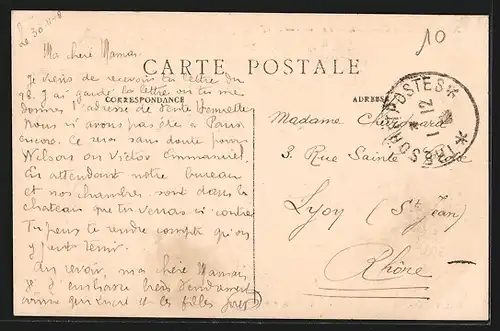 Le 30-11-8
10
Ma chère Maman
CARTE POSTALE
CORRESPONDANCE
ADRESSE
Je viens de recevoir ta lettre du
28. J'ai gardé la lettre où tu me
donnes l'adresse de tante Henriette
Nous n'avons pas été à Paris
encore. Ce sera sans doute pour
Wilson ou Victor Emmanuel.
En attendant notre bureau
et nos chambres sont dans le
chateau que tu verras ci contre
Tu peux te rendre compte qu'on
y peut tenir.
Au revoir, ma chère Maman
Je t'embrasse bien tendrement
ainsi que et les filles
Madame
3. Rue Sainte
Lyon (St Jean)
Rhône
TRESOR ET POSTES